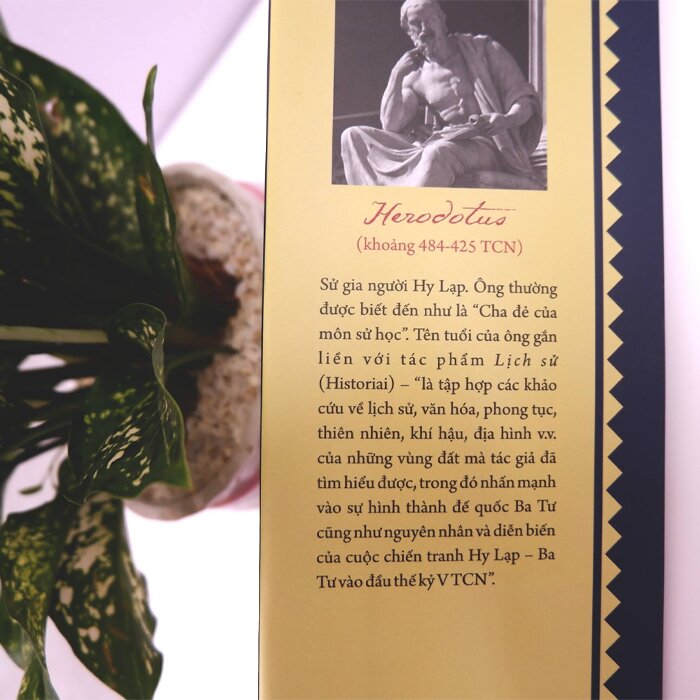 Herodotus
(khoảng 484-425 TCN)
Sử gia người Hy Lạp. Ông thường
được biết đến như là “Cha đẻ của
môn sử học”. Tên tuổi của ông gắn
liền với tác phẩm Lịch sử
(Historiai) – “là tập hợp các khảo
cứu về lịch sử, văn hóa, phong tục,
thiên nhiên, khí hậu, địa hình v.v.
của những vùng đất mà tác giả đã
tìm hiểu được, trong đó nhấn mạnh
vào sự hình thành đế quốc Ba Tư
cũng như nguyên nhân và diễn biến
của cuộc chiến tranh Hy Lạp – Ba
Tư vào đầu thế kỷ V TCN”.